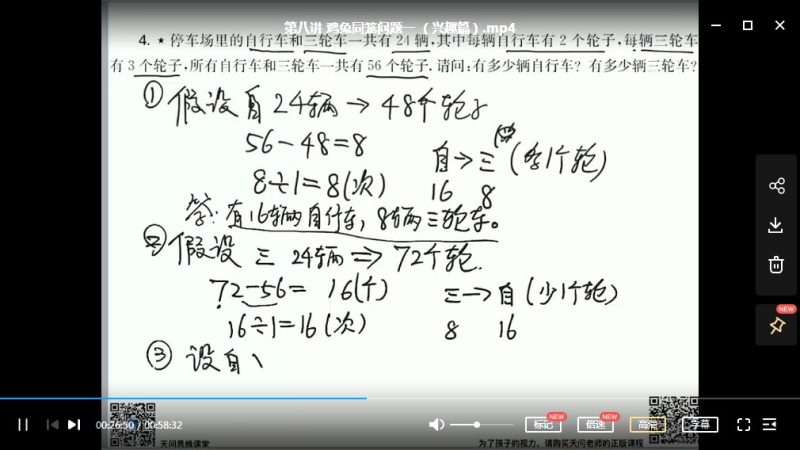 第八讲 鸡兔同笼问题一 （兴趣篇）.mp4
4. ★ 停车场里的自行车和三轮车一共有 24 辆,其中每辆自行车有 2 个轮子,每辆三轮车
有 3 个轮子,所有自行车和三轮车一共有 56 个轮子. 请问:有多少辆自行车? 有多少辆三轮车?
① 假设自24辆→48个轮子
56-48=8
自→三 (多1个轮)
8÷1=8(次)
16 8
答:有16辆自行车,8辆三轮车。
② 假设 三 24辆⇒72个轮.
72-56= 16(个)
三→自 (少1个轮)
16÷1=16(次)
8 16
③ 设自
NEW
00:26:50 / 00:58:32
标记 NEW
倍速 NEW
高清
字幕
天问思维课堂
为了孩子的视力，请购买天问老师的正版课程